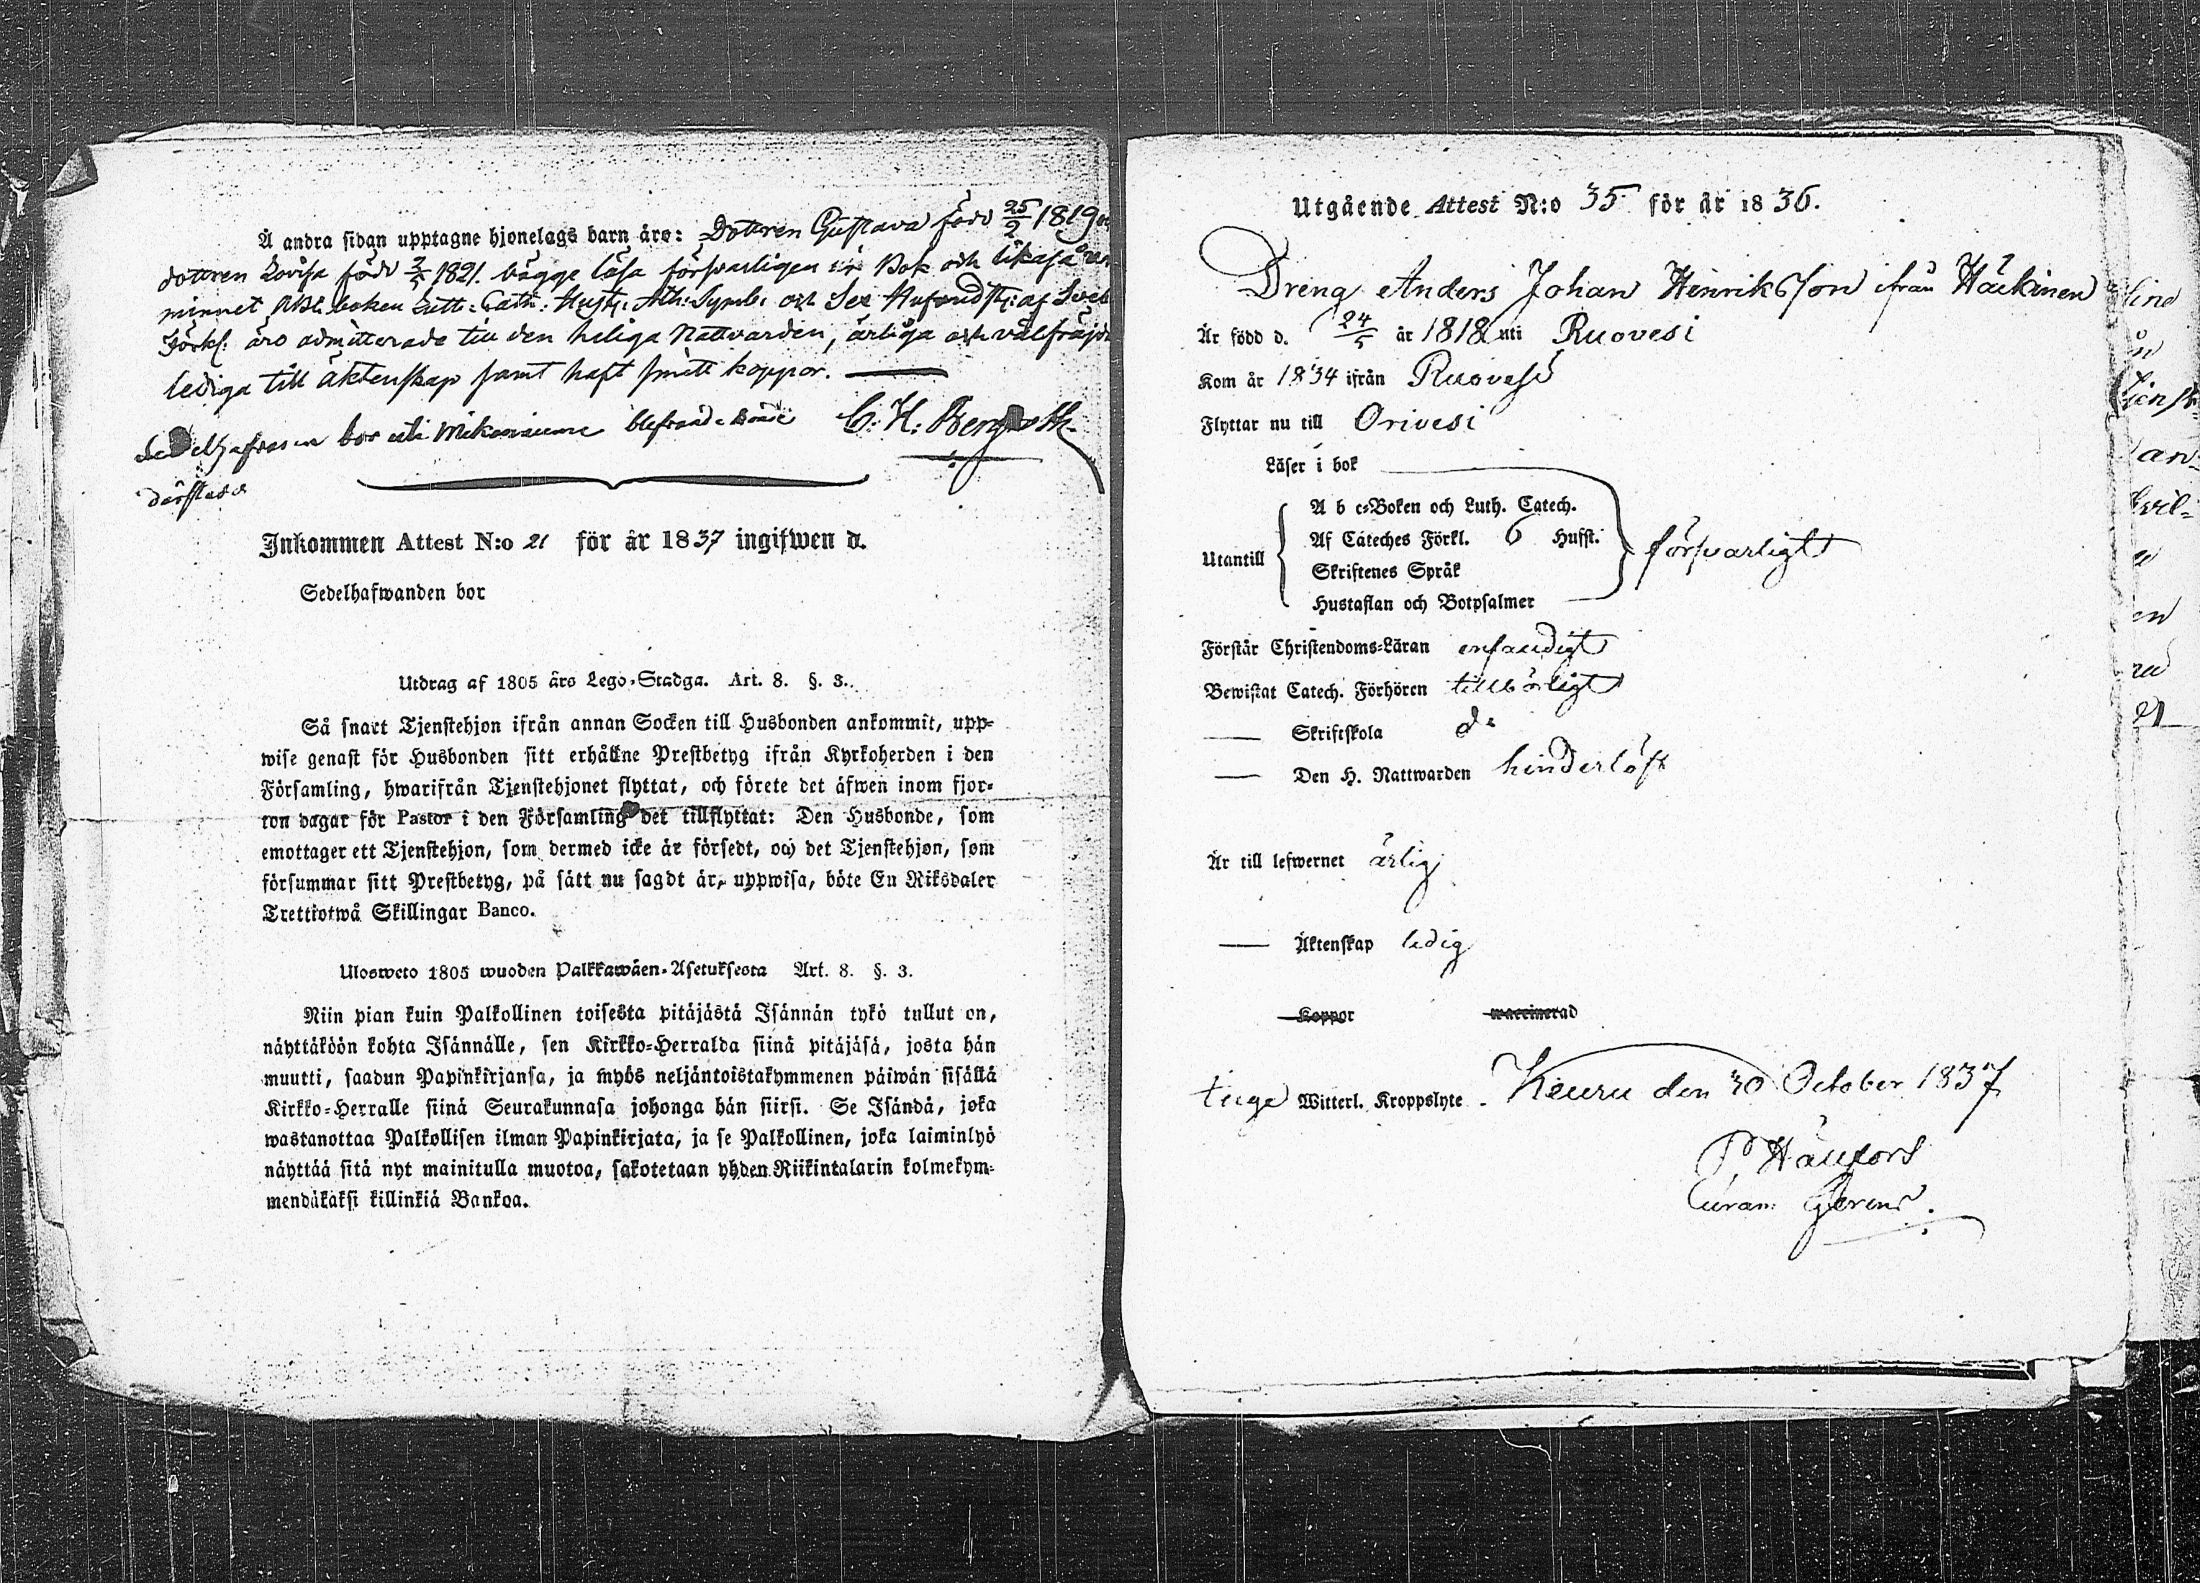 Å andra sidan upptagne hjonelags barn äro: Dottren Gustava född 25/2 1819
dottren Lovisa född 2/5 1821. bägge läsa försvarligen i Bok och likaså
minnet Abc boken Luth: Cath: Hust: Ath: Symb: och Sex
Förkl: äro admitterade till den heliga Nattvarden, ärliga och välfräjd
lediga till äktenskap samt haft smitt koppor.
bor uti C. H. Bergroth
Inkommen Attest N:o 21 för år 1837 ingifwen d.
Sedelhafwanden bor
Utdrag af 1805 års Lego-Stadga. Art. 8. §. 3.
Så snart Tjenstehjon ifrån annan Socken till Husbonden ankommit, upp-
wise genast för Husbonden sitt erhållne Prestbetyg ifrån Kyrkoherden i den
Församling, hwarifrån Tjenstehjonet flyttat, och förete det äfwen inom fjor-
ton dagar för Pastor i den Församling det tillflyttat: Den Husbonde, som
emottager ett Tjenstehjon, som dermed icke är försedt, och det Tjenstehjon, som
försummar sitt Prestbetyg, på sätt nu sagdt är, uppwisa, böte En Riksdaler
Trettiotwå Skillingar Banco.
Ulosweto 1805 wuoden Palkkawäen-Asetuksesta Art. 8. §. 3.
Niin pian kuin Palkollinen toisesta pitäjästä Isännän tykö tullut on,
näyttäköön kohta Isännälle, sen Kirkko-Herralda siinä pitäjäsä, josta hän
muutti, saadun Papinkirjansa, ja myös neljäntoistakymmenen päiwän sisällä
Kirkko-Herralle siinä Seurakunnasa johonga hän siirsi. Se Isändä, joka
wastanottaa Palkollisen ilman Papinkirjata, ja se Palkollinen, joka laiminlyö
näyttää sitä nyt mainitulla muotoa, sakotetaan yhden Riikintalarin kolmekym-
mendäkaksi killinkiä Bankoa.
Utgående Attest N:o 35 för år 1836.
Dreng Anders Johan Henriksson ifrån Häkinen
Är född d. 24/5 år 1818 uti Ruovesi
Kom år 1834 ifrån Ruovesi
Flyttar nu till Orivesi
Läser i bok
A b c-Boken och Luth. Catech.
Af Cateches Förkl. 6 Hufst.
Utantill försvarligt
Skriftenes Språk
Hustaflan och Botpsalmer
Förstår Christendoms-Läran enfaldigt
Bewistat Catech. Förhören tillbörligt
— Skriftskola do
— Den H. Nattwarden hinderlöst
Är till lefwernet ärlig
— Äktenskap ledig
Koppor waccinerad
inge Witterl. Kroppslyte. Keuru den 30 October 1837
Curam Gerens.